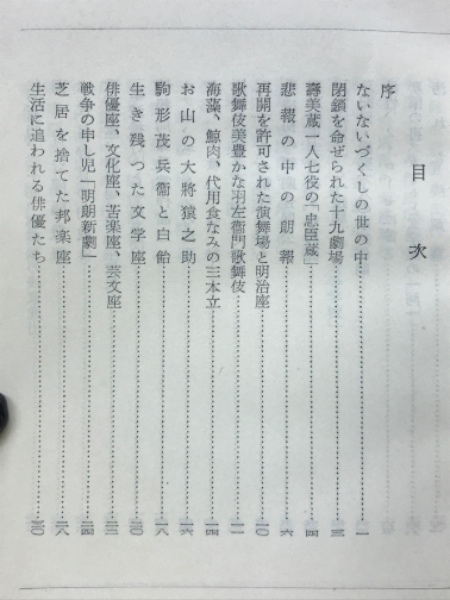 目次
序
ないないづくしの世の中…………一
閉鎖を命ぜられた十九劇場…………三
壽美蔵一人七役の「忠臣蔵」…………四
悲報の中の朗報…………六
再開を許可された演舞場と明治座…………一〇
歌舞伎美豊かな羽左衞門歌舞伎…………一一
海藻、鯨肉、代用食なみの三本立…………一四
お山の大將猿之助…………一六
駒形茂兵衞と白飴…………一八
生き残つた文学座…………二〇
俳優座、文化座、苦楽座、芸文座…………二二
戦争の申し児「明朗新劇」…………二四
芝居を捨てた邦楽座…………二八
生活に追われる俳優たち…………三〇